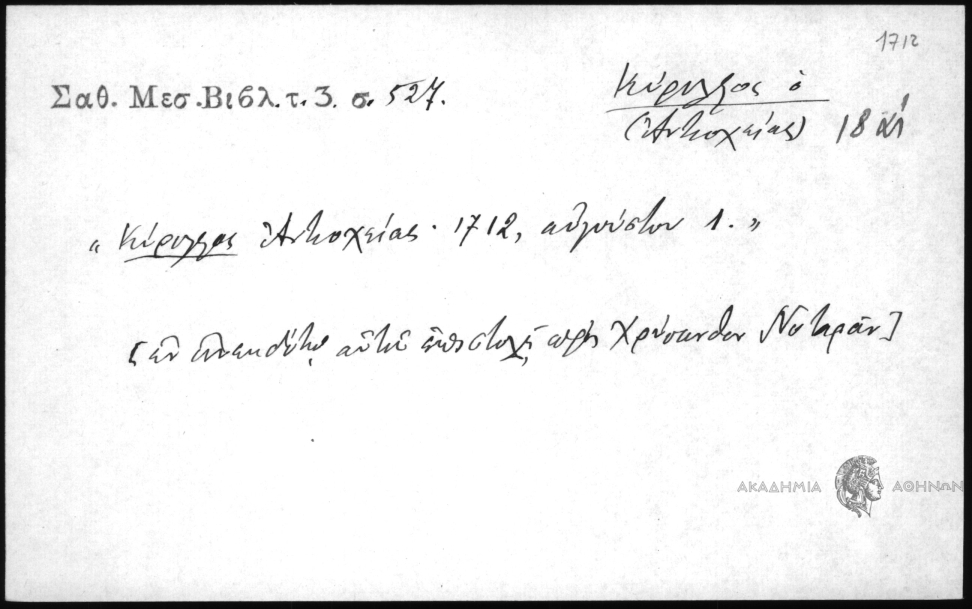 1712
Σαθ. Μεσ. Βιβλ. τ. 3. σ. 527.
Κύριλλος ὁ
(Ἀντιοχείας) 18 αἰ
„ Κύριλλος Ἀντιοχείας · 1712, αὐγούστου 1. „
[ἐν ἀνεκδότῳ αὐτοῦ ἐπιστολῇ πρὸς Χρύσανθον Νοταρᾶν]
ΑΚΑΔΗΜΙΑ ΑΘΗΝΩΝ